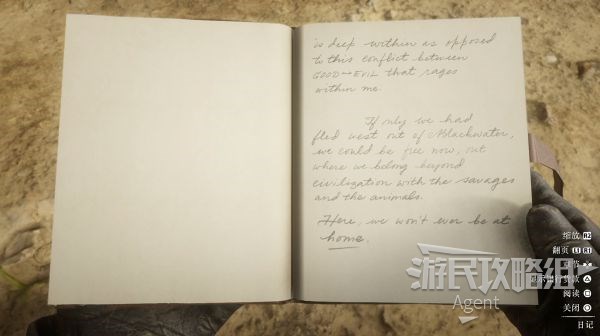 is deep within as opposed
to this conflict between
GOOD and EVIL that rages
within me.
If only we had
fled west out of Blackwater,
we could be free now, out
where we belong beyond
civilization with the savages
and the animals.
Here, we won't ever be at
home.
游民攻略组
Agent
缩放 R2
翻页 L1 R1
阅读
关闭
日记